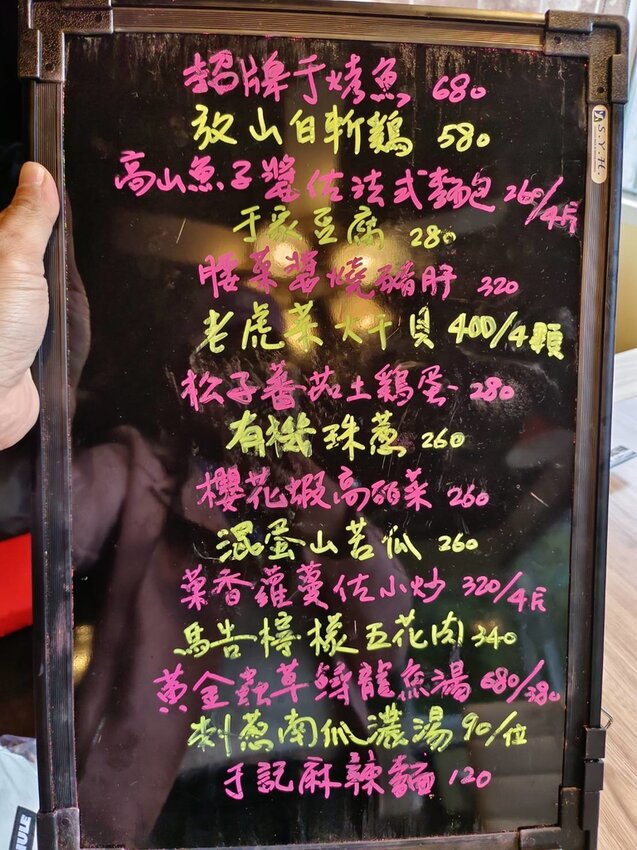 招牌于烤魚 680
放山白斬鷄 580
高山魚子醬佐法式麵包 260/4片
于家豆腐 280
腰菓醬燒豬肝 320
老虎菜大干貝 400/4顆
松子蕃茄土鷄蛋 280
有機珠蔥 260
櫻花蝦高麗菜 260
混蛋山苦瓜 260
菓香蘿蔓佐小炒 320/4片
馬告檸檬五花肉 340
黃金蟲草鱘龍魚湯 680/380
刺蔥南瓜濃湯 90/位
于記麻辣麵 120
S.Y.H.
HULE